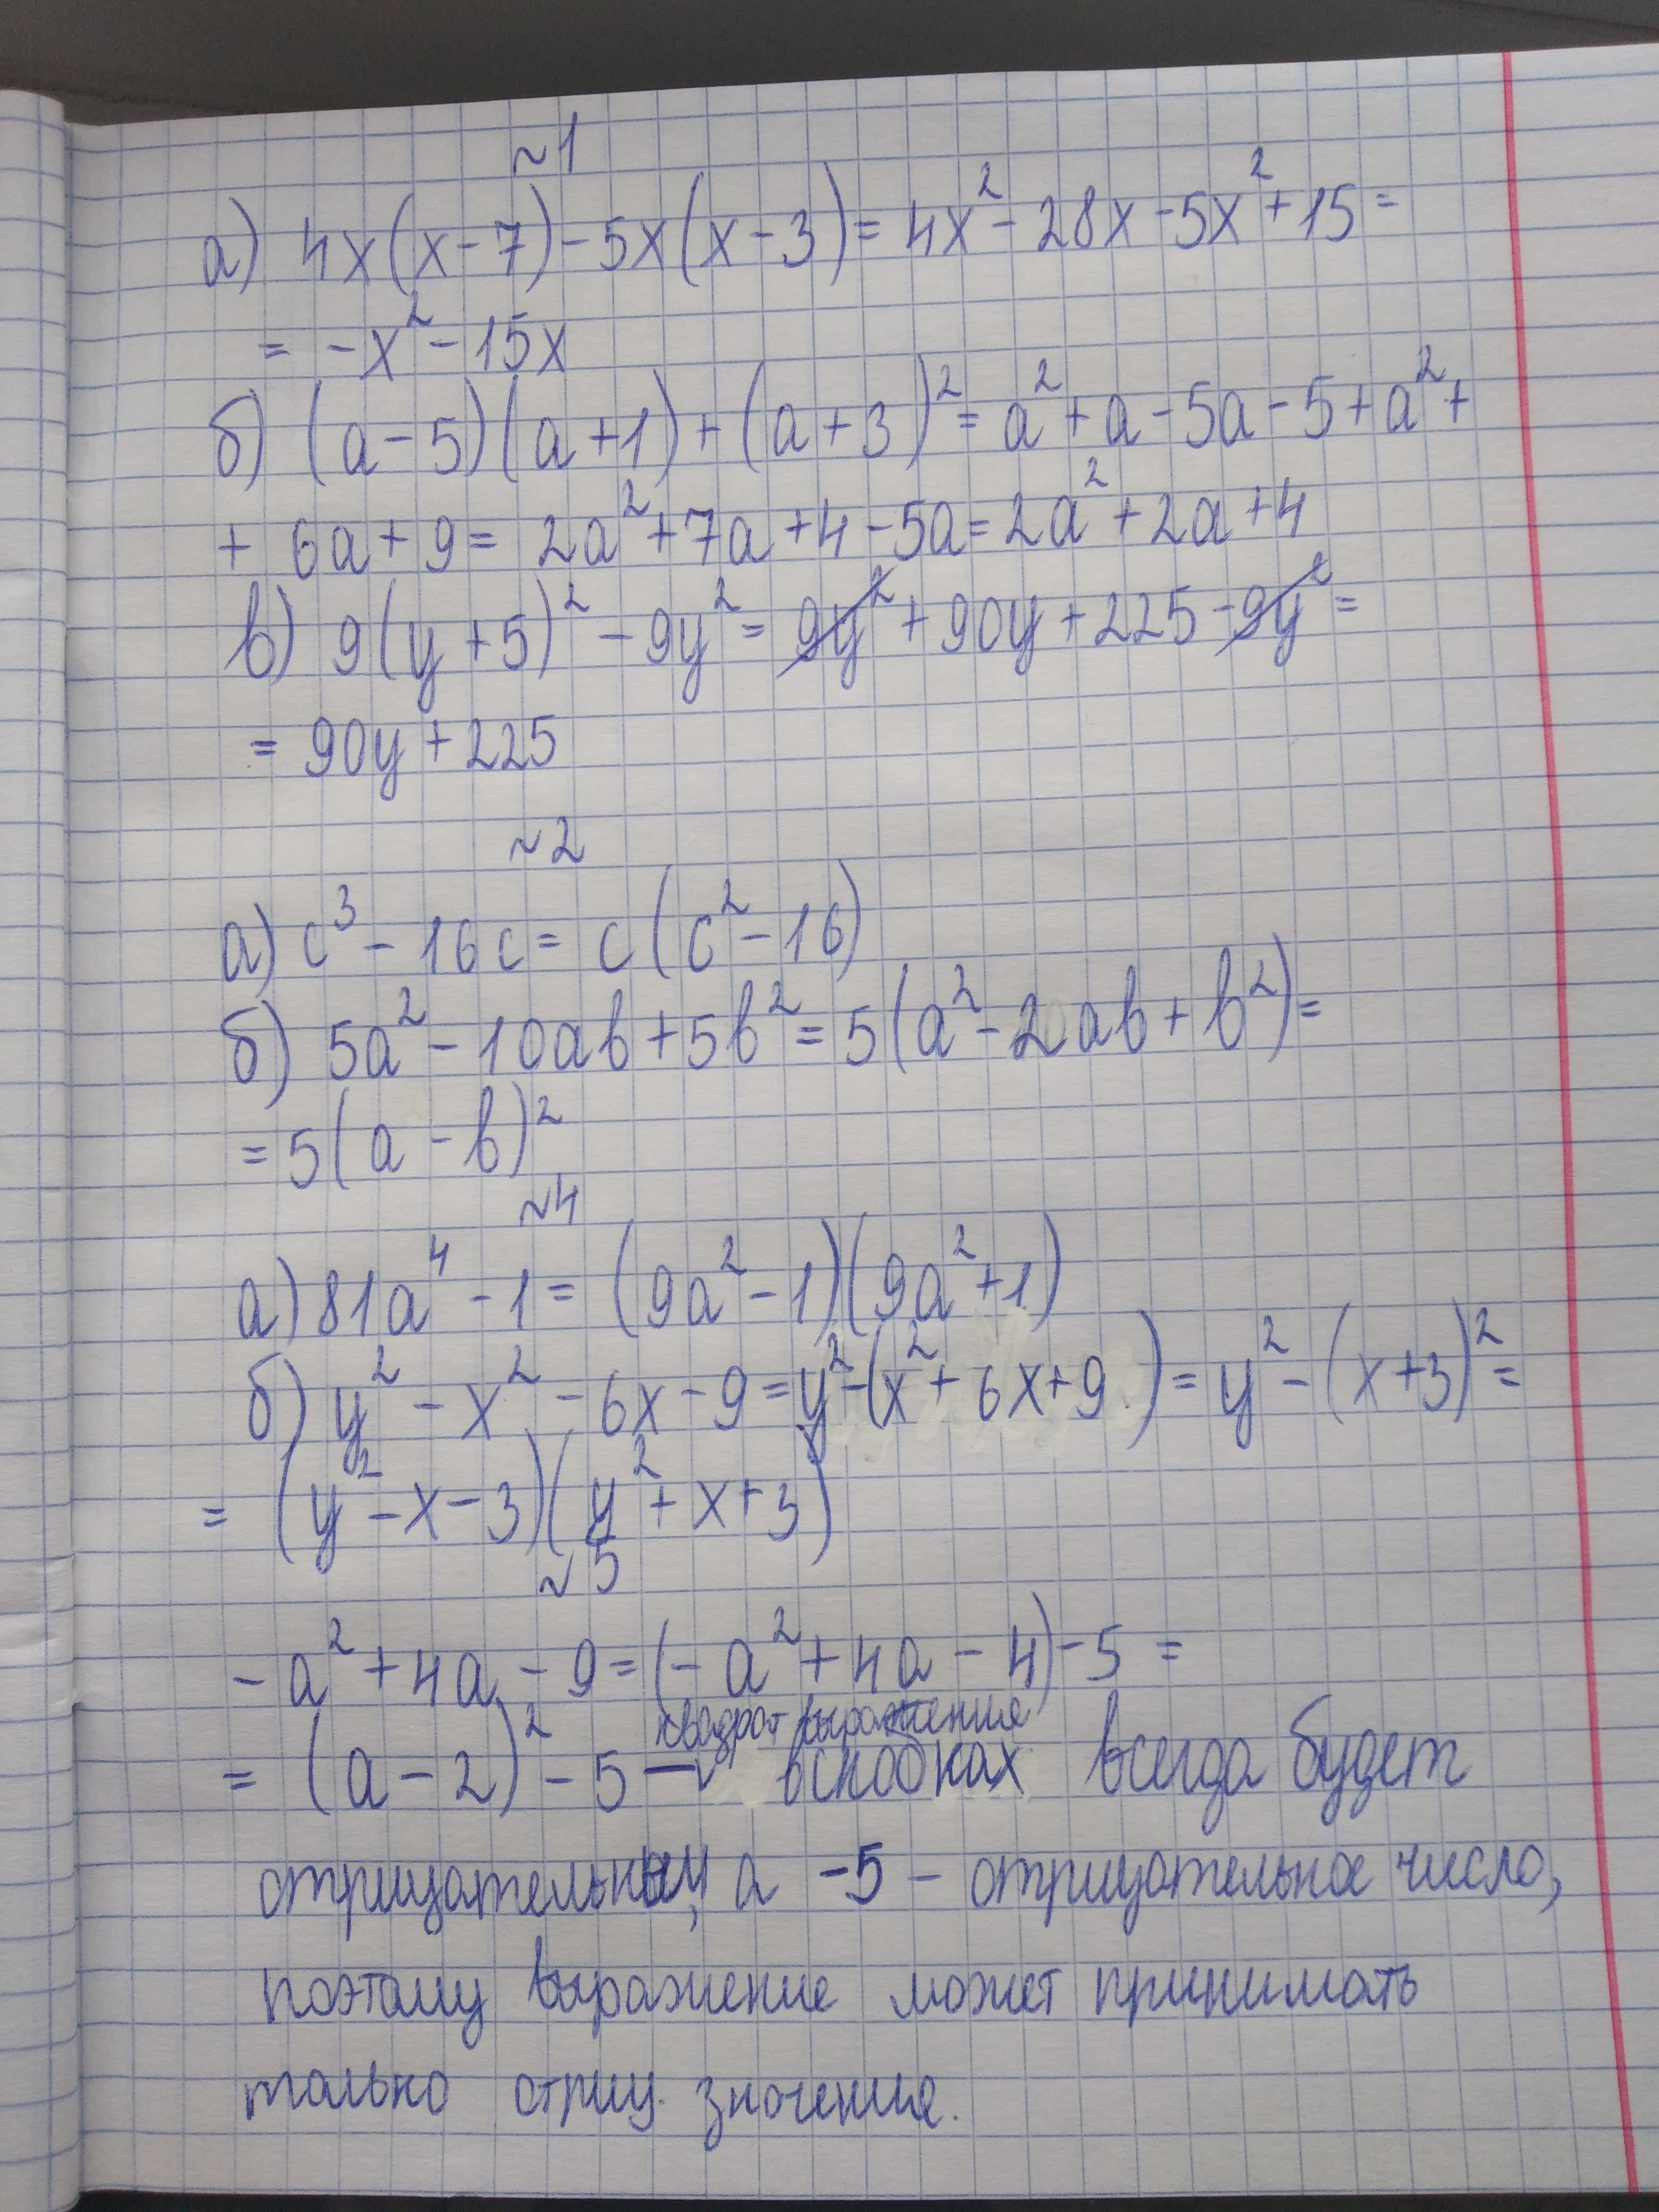 ~1
а) 4x(x-7)-5x(x-3)=4x²-28x-5x²+15=
= -x²-15x
б) (a-5)(a+1)+(a+3)²=a²+a-5a-5+a²+
+ 6a+9= 2a²+7a+4-5a=2a²+2a+4
в) 9(y+5)²-9y²= 9y²+90y+225-9y²=
= 90y+225
~2
а) c³-16c= c(c²-16)
б) 5a²-10ab+5b²=5(a²-2ab+b²)=
=5(a-b)²
~4
а) 81a⁴-1= (9a²-1)(9a²+1)
б) y²-x²-6x-9=y²-(x²+6x+9)=y²-(x+3)²=
= (y²-x-3)(y²+x+3)
~5
-a²+4a-9=(-a²+4a-4)-5=
квадрат выражения
= (a-2)²-5 — в скобках всегда будет
отрицательным, а -5 - отрицательное число,
поэтому выражение может принимать
только отриц. значение.